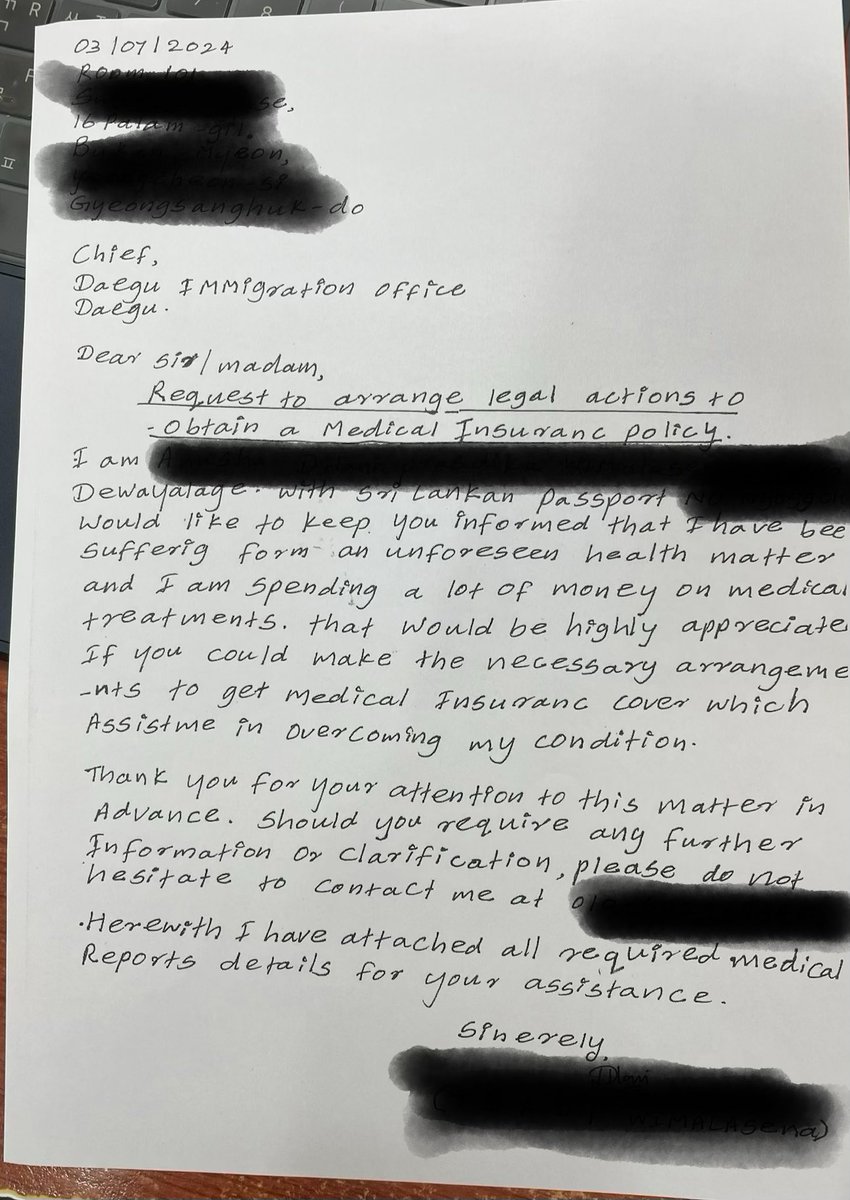 03/07/2024
Chief,
Daegu Immigration office
Daegu.
Dear sir/madam,
Request to arrange legal actions to
-Obtain a Medical Insuranc policy.
I am
Dewayalage. with Sri Lankan Passport
would like to keep you informed that I have bee
sufferig form an unforeseen health matter
and I am spending a lot of money on medical
treatments. that would be highly appreciate
If you could make the necessary arrangeme
-nts to get medical Insuranc cover which
Assistme in overcoming my condition.
Thank you for your attention to this matter in
Advance. Should you require any further
Information or clarification, please do not
hesitate to contact me at
.Herewith I have attached all required medical
Reports details for your assistance.
Sinerely,